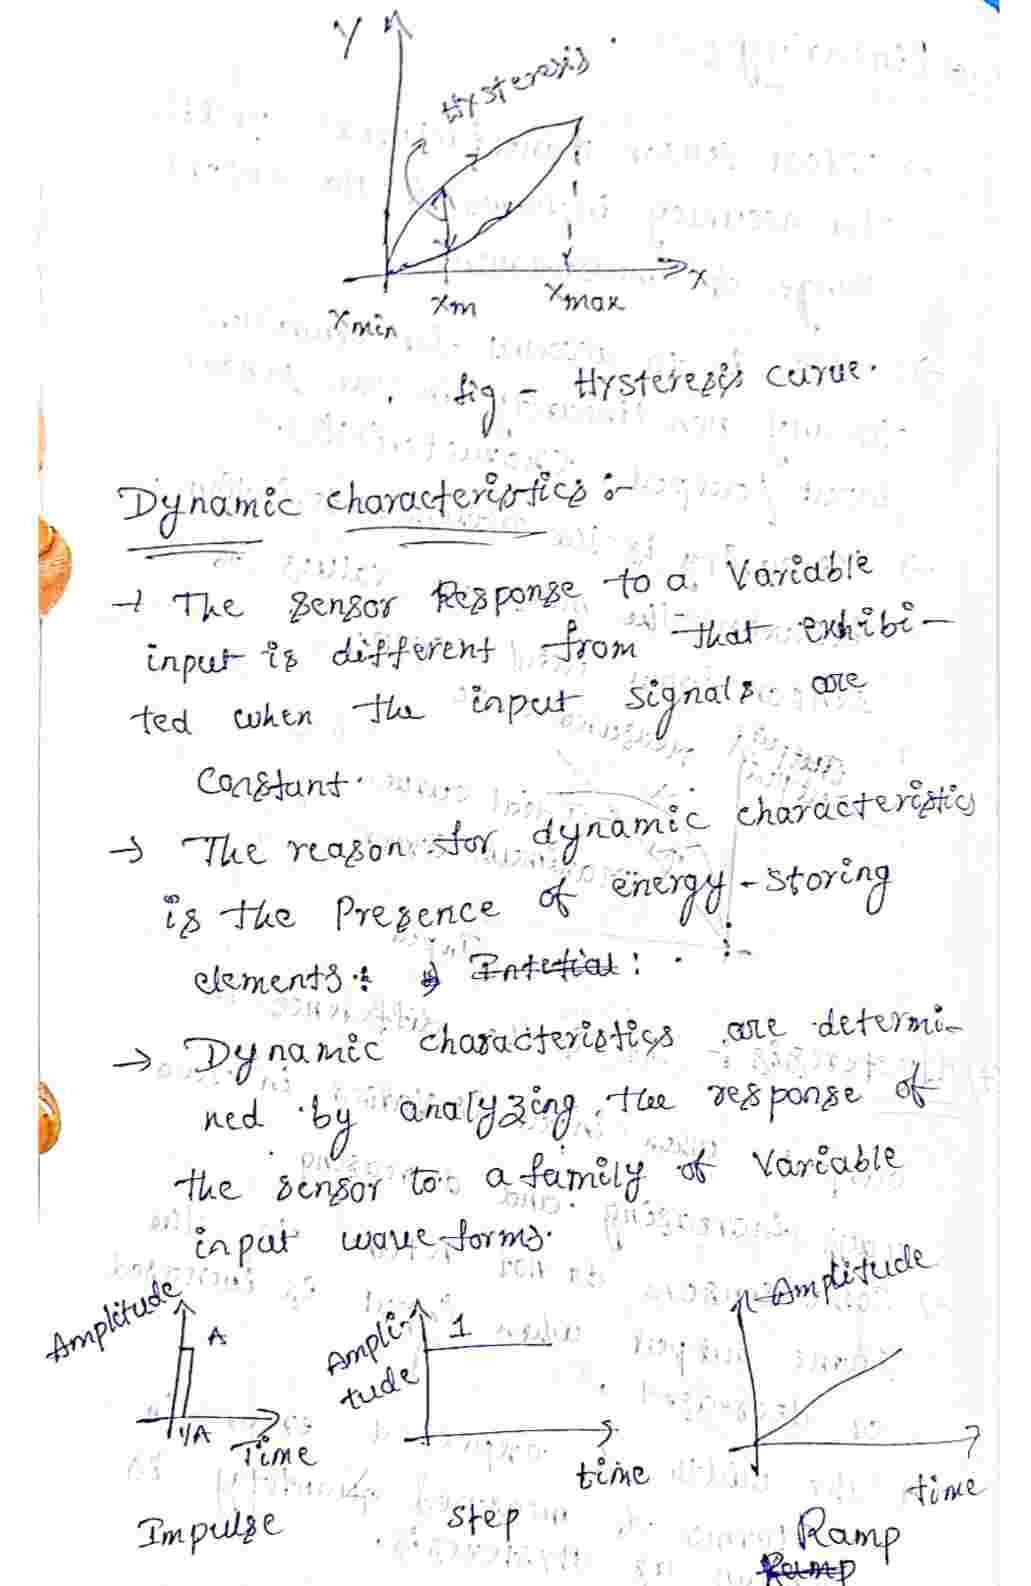 Y
Hysteresis
X
Xmin
Xm
Xmax
fig - Hysteresis curve.
Dynamic characteristics :-
→ The sensor Response to a Variable
input is different from that exhibi-
ted when the input signals are
Constant.
→ The reason for dynamic characteristics
is the Presence of energy-storing
elements.
→ Dynamic characteristics are determi-
ned by analyzing the response of
the sensor to a family of Variable
input wave forms.
Amplitude
A
1/A
Time
Impulse
Ampli-
tude
1
time
Step
Amplitude
time
Ramp
Ramp